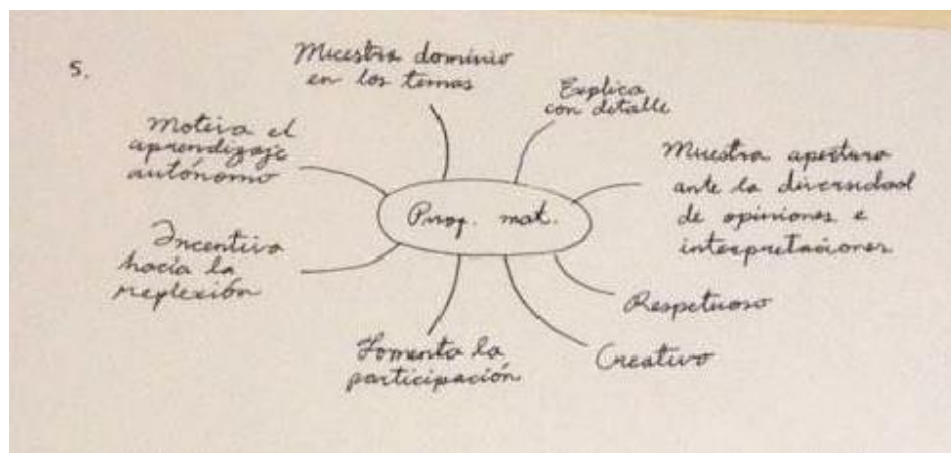 5.
Muestra dominio
en los temas
Explica
con detalle
Muestra apertura
ante la diversidad
de opiniones e
interpretaciones
Respetuoso
Creativo
Fomenta la
participación
Incentiva
hacia la
reflexión
Motiva el
aprendizaje
autónomo
Prof. mat.